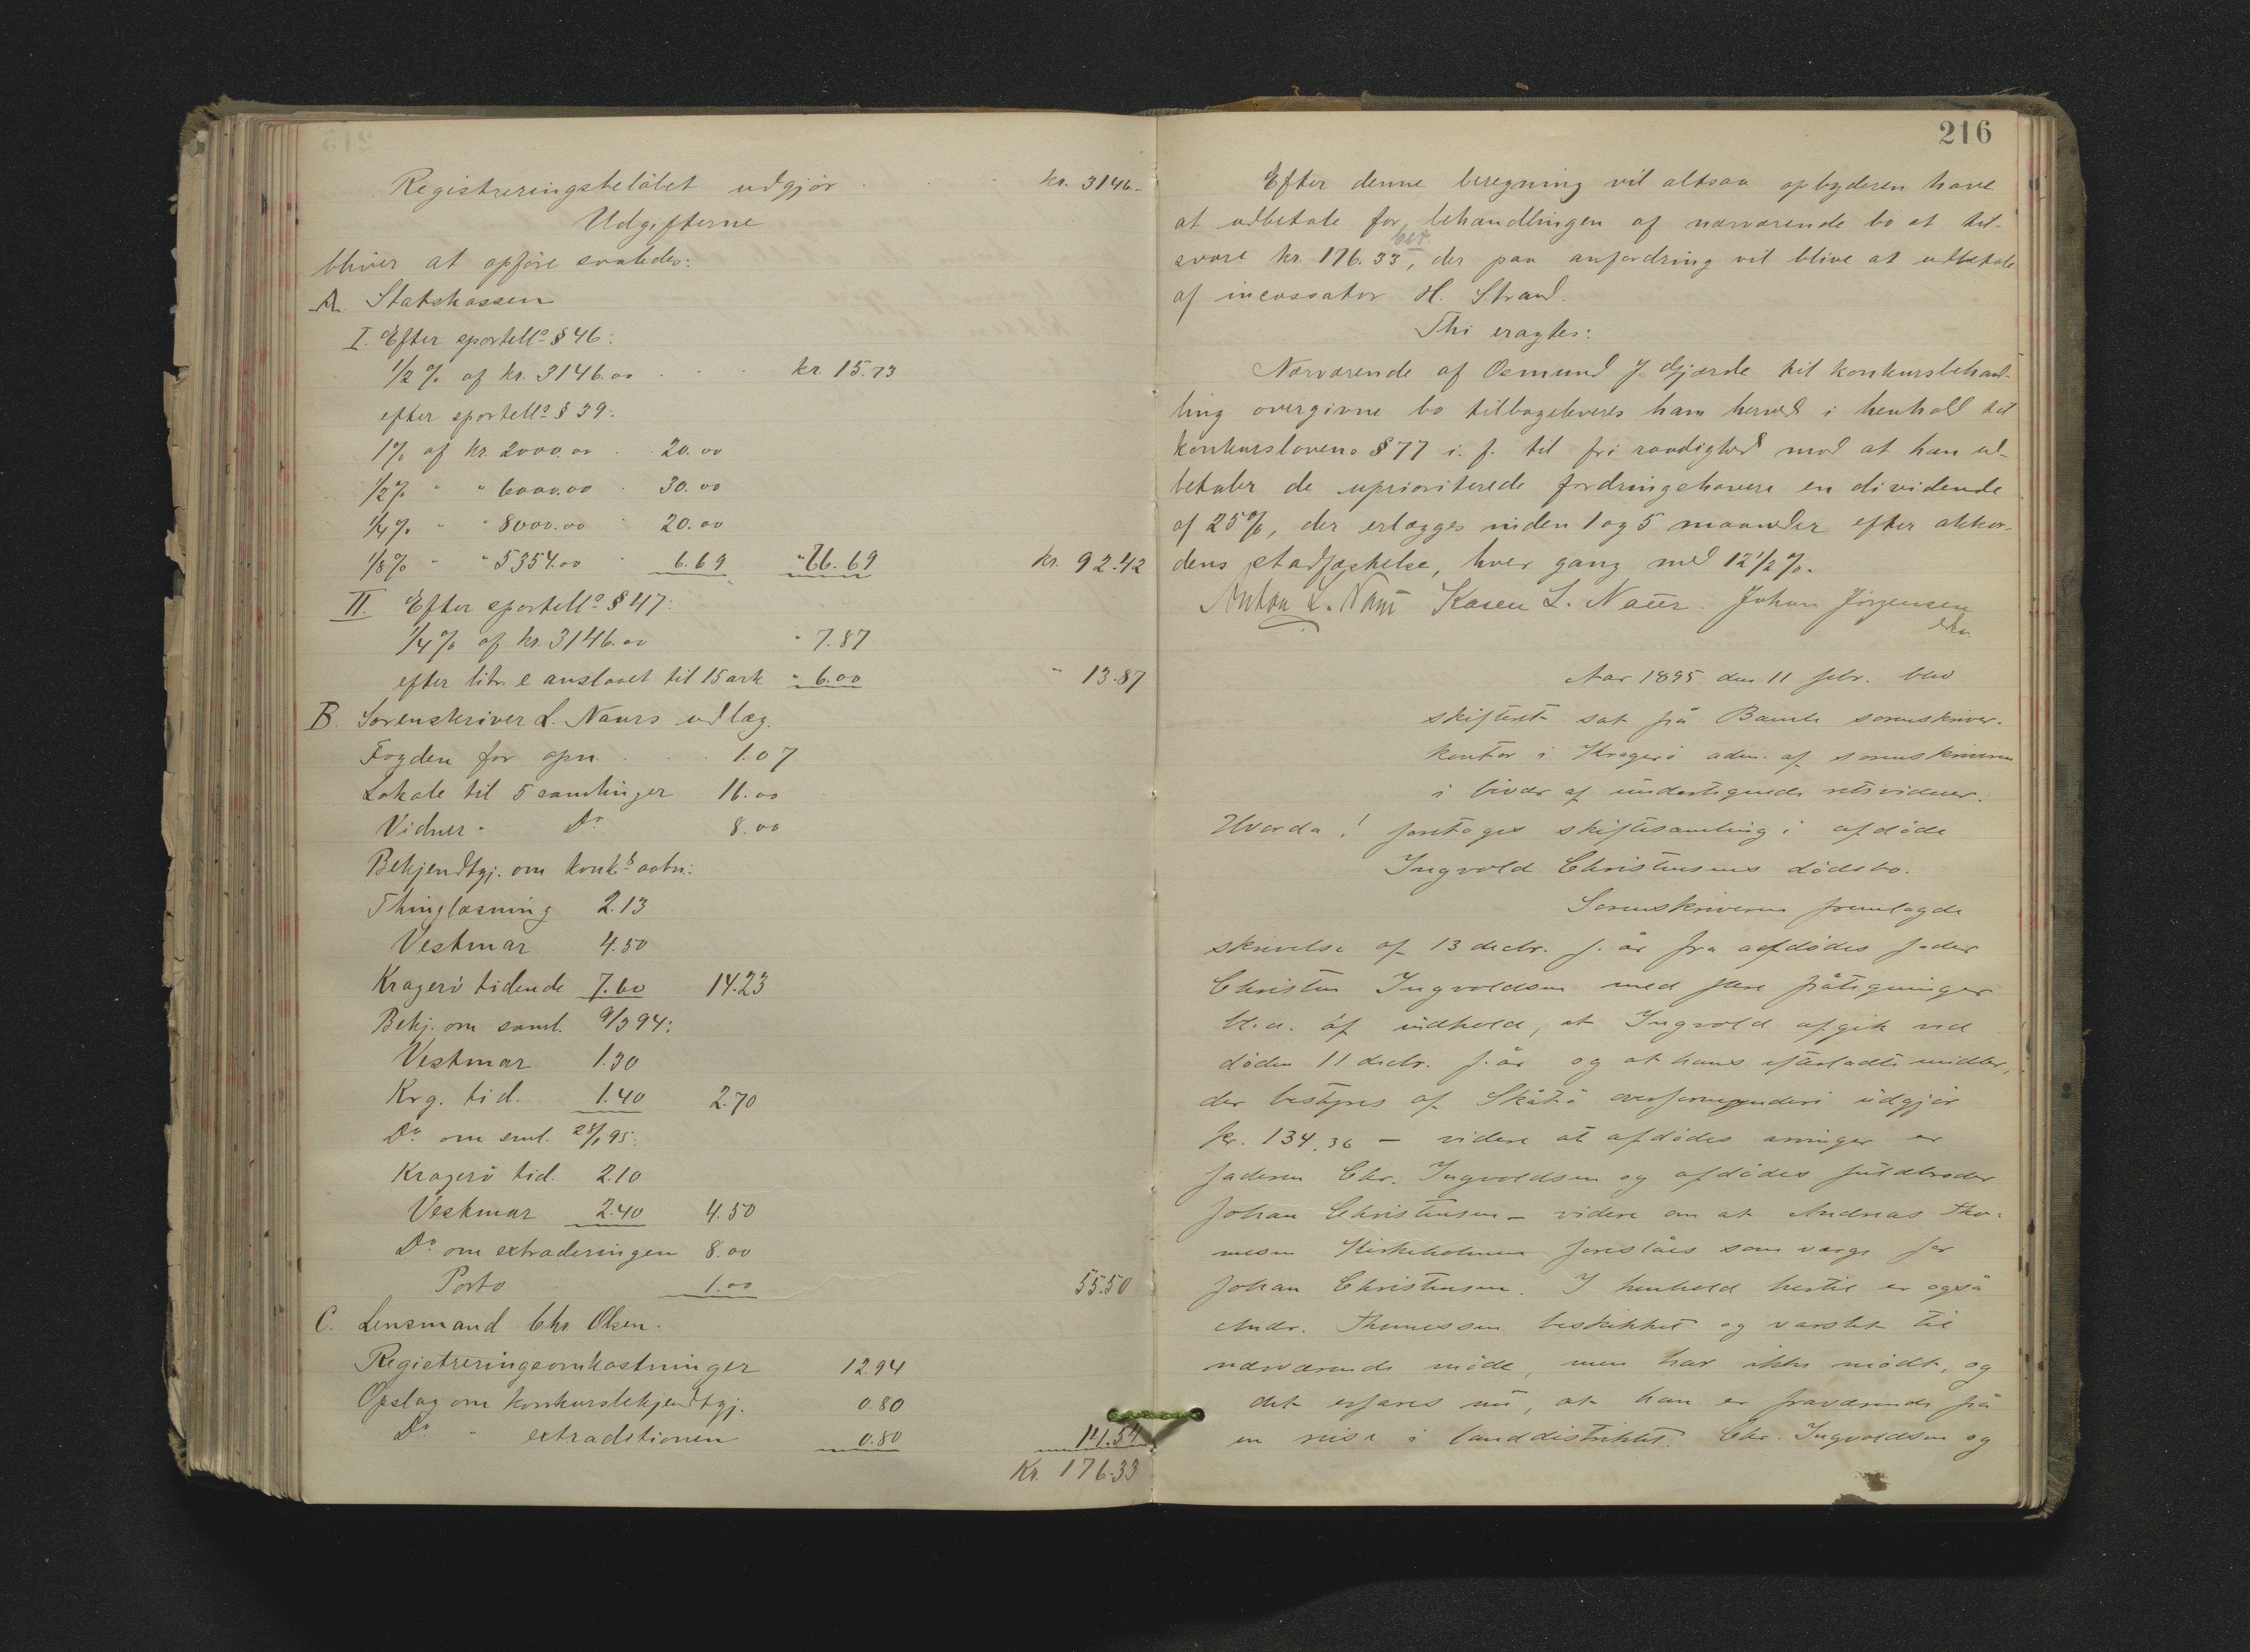 Registreringsbeløbet udgjør . . . kr. 3146.-
Udgifterne
bliver at opføre saaledes:
A. Statskassen
I. Efter sportell: § 46:
1/2 % af kr. 3146.00 . . . kr. 15.73
efter sportell: § 39:
1% af kr. 2000.00 . 20.00
1/2% " " 6000.00 . 30.00
1/4% " " 8000.00 " 20.00
1/8% " " 5354.00 " 6.69 " 76.69 kr. 92.42
II. Efter sportell: § 47:
1/4% af kr. 3146.00 " 7.87
efter litr. e anslaaet til 15 ark " 6.00 " 13.87
B. Sorenskriver L. Naurs udlæg.
Fogden for opn. . . . 1.07
Lokale til 5 samlinger 16.00
Vidner " Do 8.00
Bekjendtgj. om konks aabn:
Thinglæsning 2.13
Vestmar 4.50
Kragerø tidende 7.60 14.23
Bekj. om saml. 9/3 94:
Vestmar 1.30
Krg. tid. 1.40 2.70
Do om saml. 28/1 95:
Kragerø tid. 2.10
Vestmar 2.40 4.50
Do om extraderingen 8.00
Porto 1.00 55.50
C. Lensmand Chr. Olsen.
Registreringsomkostninger 12.94
Opslag om konkursbekjendtgj. 0.80
Do " extraditionen 0.80 14.54
Kr. 176.33
216
Efter denne beregning vil altsaa opbyderen have
at udbetale for behandlingen af nærværende bo at til-
bet
svare kr. 176.33, der paa anfordring vil blive at udbetale
af incassator H. Strand.
Thi eragtes:
Nærværende af Osmund J. Gjærde til konkursbehand-
ling overgivne bo tilbageleveres ham herved i henhold til
konkurslovens § 77 i. f. til fri raadighed mod at han ud-
betaler de uprioriterede fordringshavere en dividende
af 25%, der erlægges inden 1 og 5 maaneder efter akkor-
dens stadfæstelse, hver gang med 12 1/2 %.
Anton L. Naur Karen L. Naur. Johan Jørgensen
Aar 1895 den 11 febr. blev
skifteret sat på Bamle sorenskriver-
kontor i Kragerø adm. af sorenskriveren
i overvær af undertegnede retsvidner.
Hvorda! foretoges skiftesamling i afdøde
Ingvold Christensens dødsbo.
Sorenskriveren fremlagde
skrivelse af 13 decbr. f. år fra afdødes fader
Christen Ingvoldsen med flere påtegninger
bl.a. af indhold, at Ingvold afgik ved
døden 11 decbr. f. år og at hans efterladte midler,
der bestyres af Skåtø overformynderi udgjør
kr. 134.36 — videre at afdødes arvinger er
faderen Chr. Ingvoldsen og afdødes fuldbroder
Johan Christensen — videre om at Andreas Tho-
mesen Kirkeholmen foreslåes som værge for
Johan Christensen. I henhold hertil er også
Andr. Thomessen beskikket og varslet til
nærværende møde, men har ikke mødt, og
det erfares nu, at han er fraværende på
en reise i landdistriktet. Chr. Ingvoldsen og